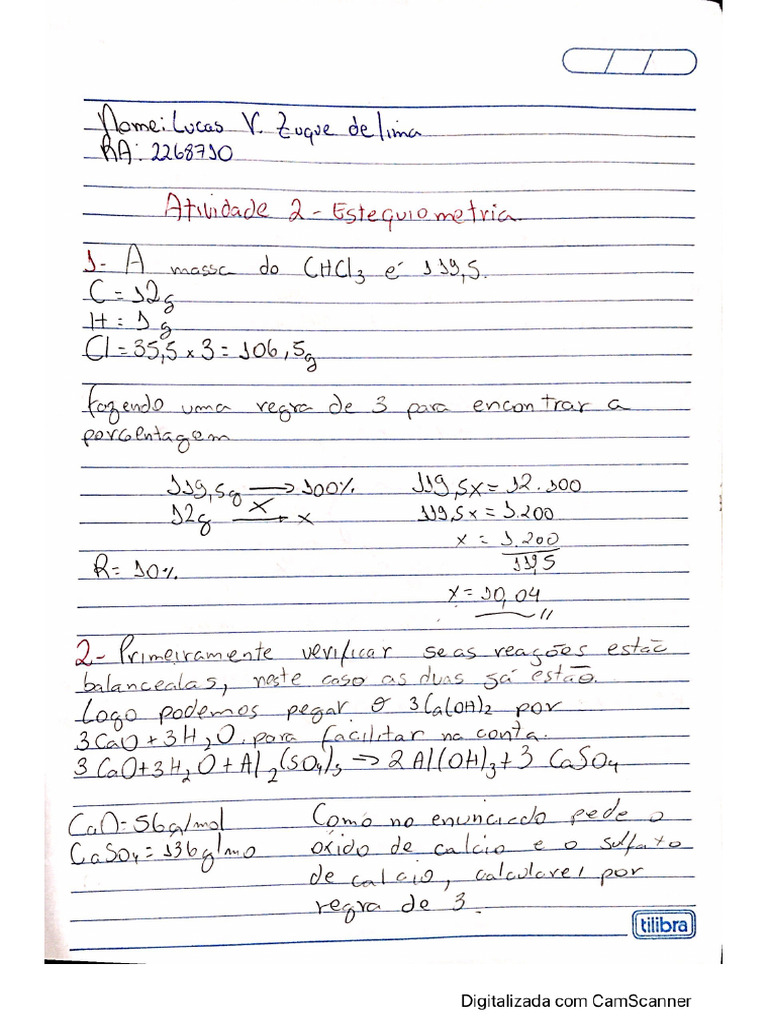 Nome: Lucas V. Zuque de lima
RA: 2268710
Atividade 2 - Estequiometria.
1- A massa do CHCl3 é 119,5.
C = 12g
H = 1g
Cl = 35,5 x 3 = 106,5g
fazendo uma regra de 3 para encontrar a
porcentagem
119,5g → 100%
12g → x
X
119,5x = 12.100
119,5x = 1.200
x = 1.200
119,5
x = 10,04
R = 10%
2- Primeiramente verificar se as reações estão
balancealas, neste caso as duas já estão.
Logo podemos pegar o 3Ca(OH)2 por
3CaO + 3H2O. para facilitar na conta.
3CaO + 3H2O + Al2(SO4)3 → 2Al(OH)3 + 3 CaSO4
CaO = 56g/mol
CaSO4 = 136g/mo
Como no enunciado pede o
óxido de calcio e o sulfato
de calcio, calcularei por
regra de 3.
tilibra
Digitalizada com CamScanner